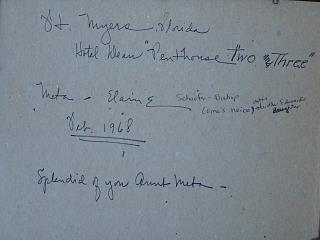 Ft. Myers, Florida
Hotel Dean "Penthouse Two & Three"
Meta - Elaine Schaefer-Bishop
(Oma's neice)
Feb. 1968
Splendid of you Aunt Meta -